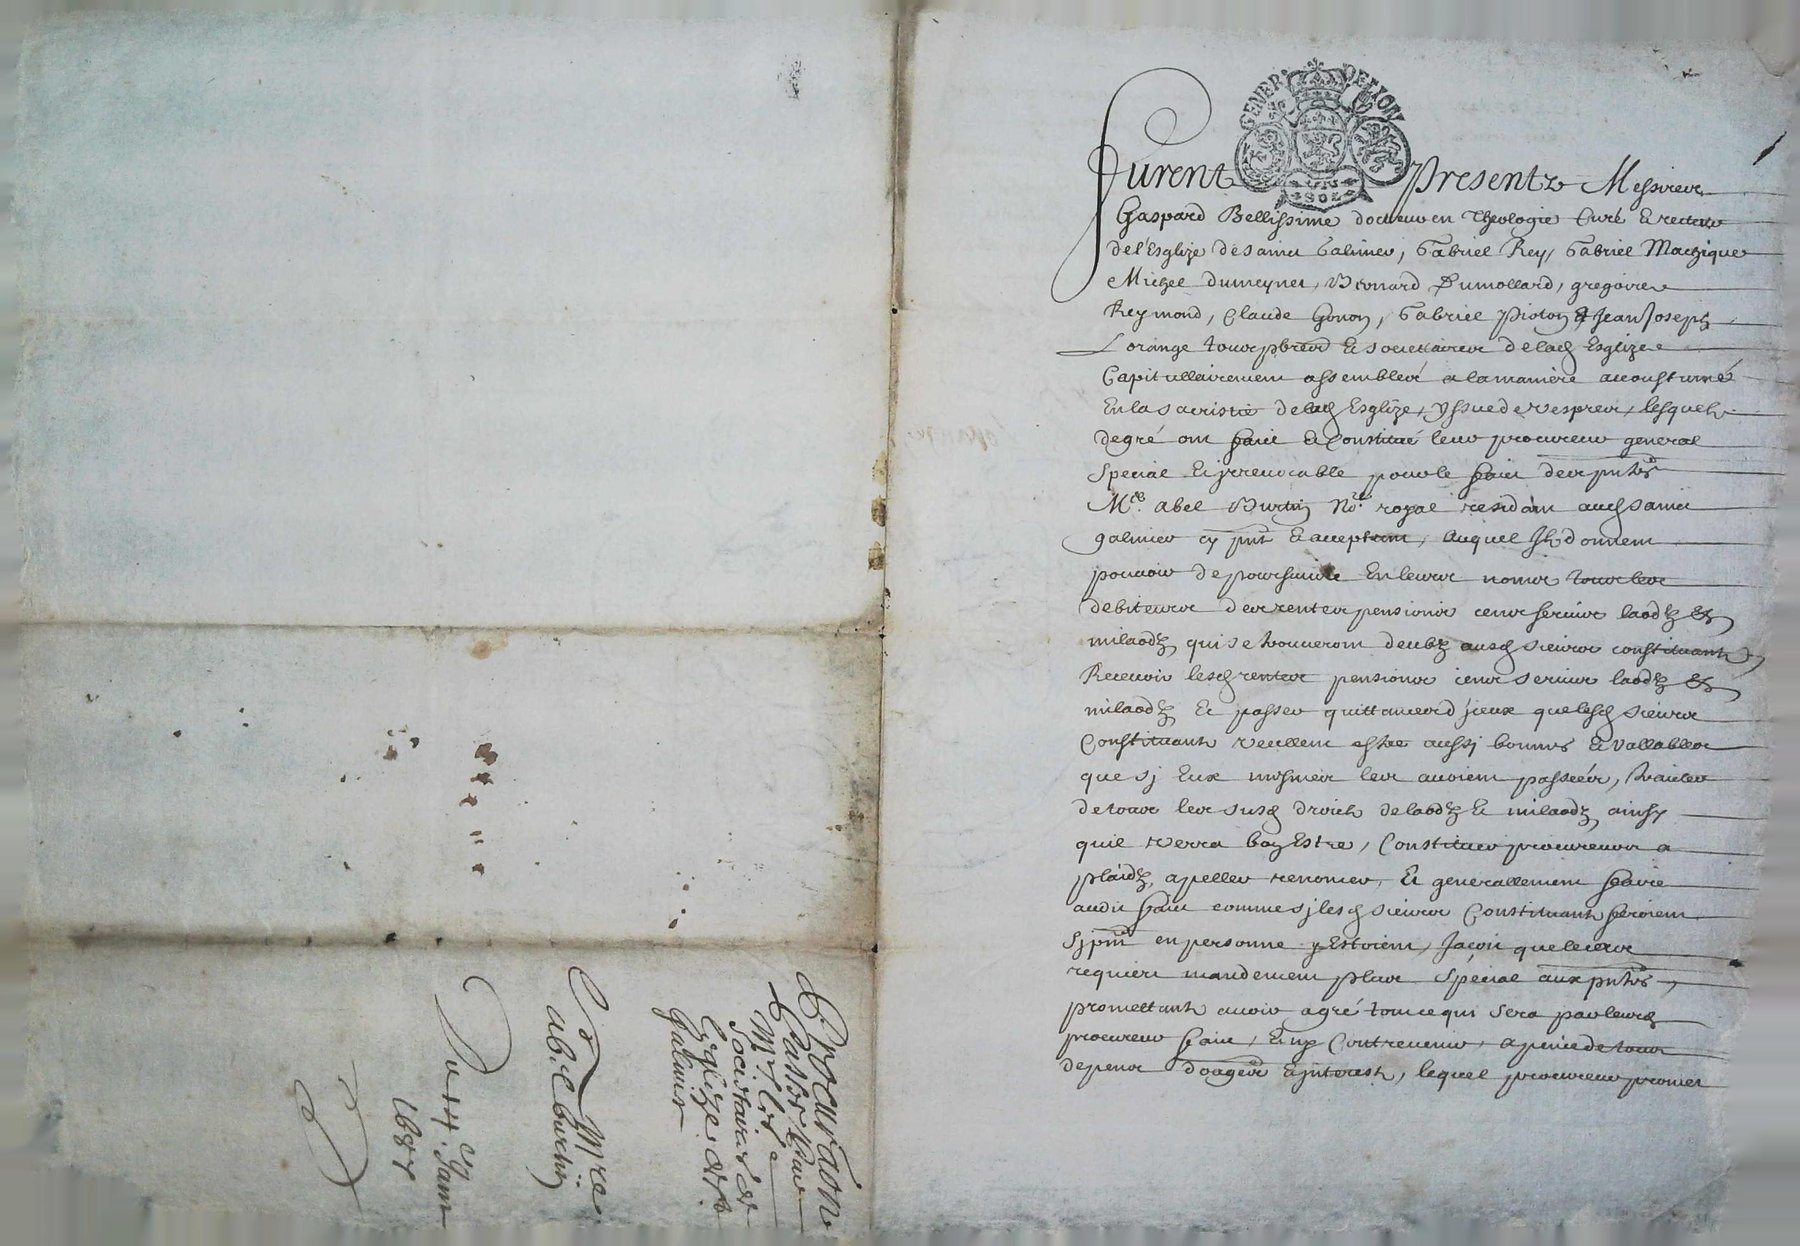 GENER· DE LYON
Furent Presentz Messieurs
Gaspard Bellissime docteur en Theologie Curé & recteur
de l'Esglize de Sainct Galmier, Gabriel Rey, Gabriel Mazique
Michel dumeynet, Bernard Dumollard, gregoire
Reymond, Claude Gonon, Gabriel Pioton & Jean Joseph
Lorange tous pbres & societaires de lad Esglize
Capitullairement assemblés a la maniere accoustumé
En la sacristie de lad Esglize, yssue de vespres, lesquels
de gré ont faict & Constitué leur procureur general
Special & jrrevocable pour le faict des pntes
Mre. abel Burtin Nore. royal residant aud Sainct
galmier cy pnt & acceptant, auquel Ils donnent
pouvoir de poursuivre En leurs noms tous les
debiteurs des rentes pensions cens servis laodz &
milaodz, qui se trouveront deubz ausd sieurs constituants,
Recevoir lesd rentes pensions cens servis laodz &
milaodz Et passer quittances d'jceux que lesd sieurs
Constituants veullent estre aussj bonnes & vallables
que sj Eux mesmes les avoient passées, traicter
de tous les susd droicts de laodz & milaodz, ainsy
quil verra bon Estre, Constituer procureurs a
plaidz, apeller renoncer, Et generallement faire
audit faict comme sj lesd sieurs Constituants feroient
Sj pnts en personne y Estoient, Jacoit que le cas
requiert mandement plus Spécial aux pntes,
promettants avoir agré tout ce qui sera par leurd
procureur faict, & ny Contrevenir, a peine de tous
depens domages & jnterests, lequel procureur promet
Procuraon
Passée par
Mrs les
Societaires de
l'Eglize de St
Galmier
A Mre
ab. Burtin
Du 14e Janv